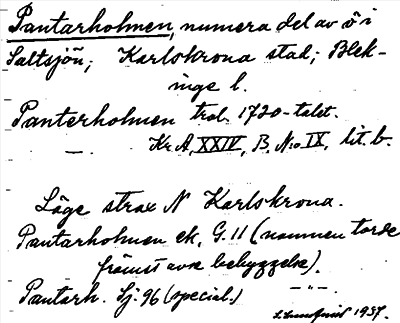 Pantarholmen, numera del av ö i
Saltsjön; Karlskrona stad; Blek-
inge l.
Pantarholmen trol. 1720-talet.
— Kr. A. XXIV, B. N:o IX, lit. b.
Läge strax N Karlskrona.
Pantarholmen ek. G. 11 (namnen torde
främst avse bebyggelse).
Pantarh. Sj. 96 (special.) —"—
1937.